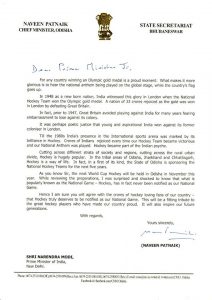 NAVEEN PATNAIK
CHIEF MINISTER, ODISHA
STATE SECRETARIAT
BHUBANESWAR
Dear Prime Minister Ji,
For any country winning an Olympic gold medal is a proud moment. What makes it more
glorious is to hear the national anthem being played on the global stage, while the country's flag
goes up.
In 1948 as a new born nation, India witnessed this glory in London when the National
Hockey Team won the Olympic gold medal. A nation of 33 crores rejoiced as the gold was won
in London by defeating Great Britain.
Prior to 1947, Great Britain avoided playing against India for many years in fact, fearing
embarrassment to lose against its colony.
It was perhaps poetic justice that young and aspirational India won against its former
coloniser in London.
Till the 1980s India's presence in the international sports arena was marked by its
brilliance in Hockey. Crores of Indians rejoiced every time our Hockey Team became Olympic
medallist and our National Anthem was played. Hockey became part of the Indian psyche.
Cutting across different strata of society and regions, cutting across the rural urban
divide, Hockey is hugely popular. In the tribal areas of Odisha, Jharkhand and Chhattisgarh,
Hockey is a way of life. In fact, in a first of its kind, the State of Odisha is sponsoring the
National Hockey Teams for the next five years.
As you know Sir, the next World Cup Hockey will be held in Odisha in November this
year. While reviewing the preparations, I was surprised and shocked to know that what is
popularly known as the National Game - Hockey, has in fact never been notified as our National
Game.
Hence I am sure you will agree with the crores of hockey loving fans of our country -
that Hockey truly deserves to be notified as our National Game. This will be a fitting tribute to
the great hockey players who have made our country proud. It will also inspire our future
generations.
With regards,
Yours sincerely,
(NAVEEN PATNAIK)
SHRI NARENDRA MODI,
Prime Minister of India,
New Delhi.